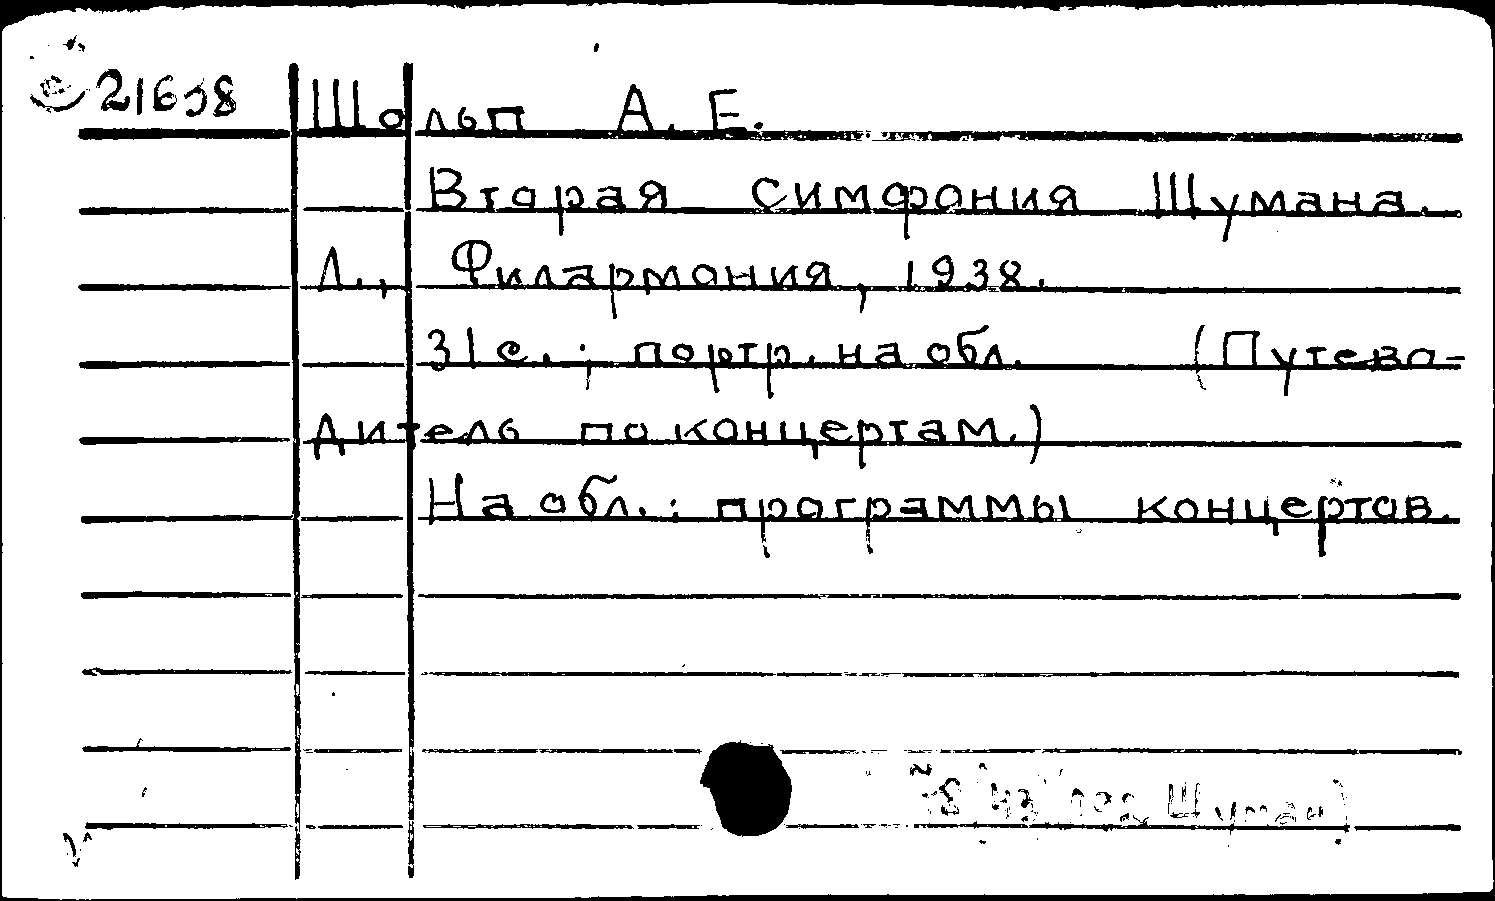 21638 Шольп А. Е.
Вторая симфония Шумана.
Л., Филармония, 1938.
31 с.; портр. на обл. (Путево-
дитель по концертам.)
На обл.: программы концертов.
Шуман)